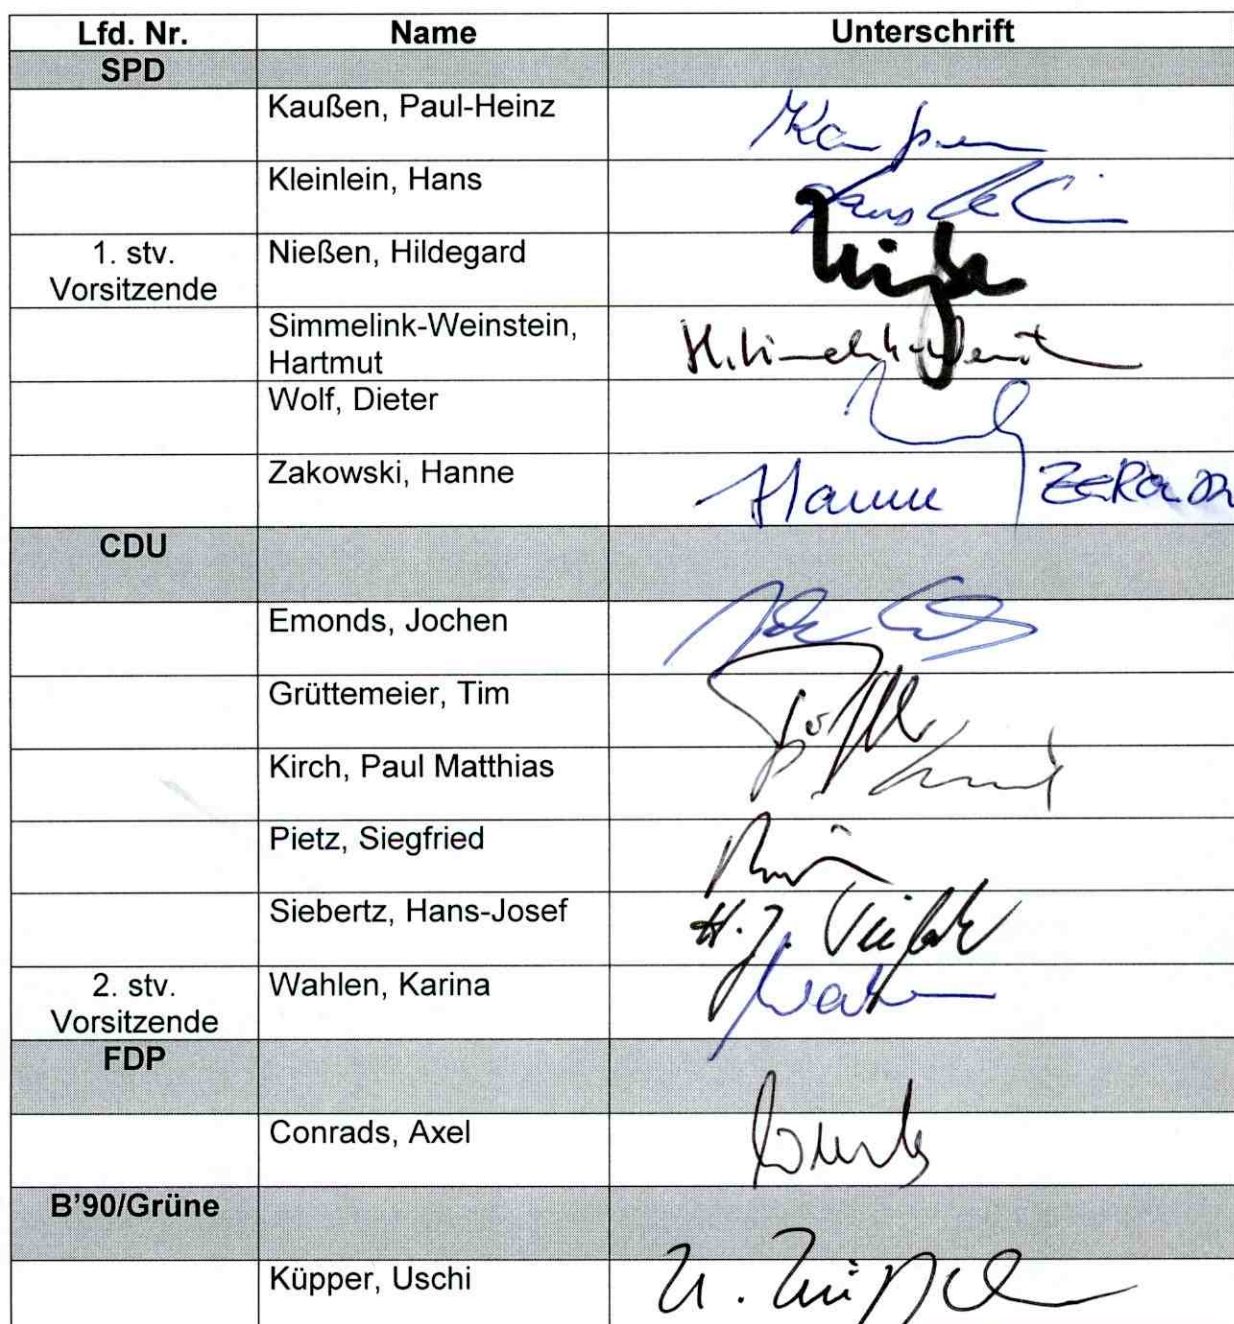 Lfd. Nr. Name Unterschrift
SPD
Kaußen, Paul-Heinz
Kleinlein, Hans
1. stv. Nießen, Hildegard
Vorsitzende
Simmelink-Weinstein,
Hartmut
Wolf, Dieter
Zakowski, Hanne Hanne
CDU
Emonds, Jochen
Grüttemeier, Tim
Kirch, Paul Matthias
Pietz, Siegfried
Siebertz, Hans-Josef H.J.
2. stv. Wahlen, Karina
Vorsitzende
FDP
Conrads, Axel
B’90/Grüne
Küpper, Uschi U. Küpper